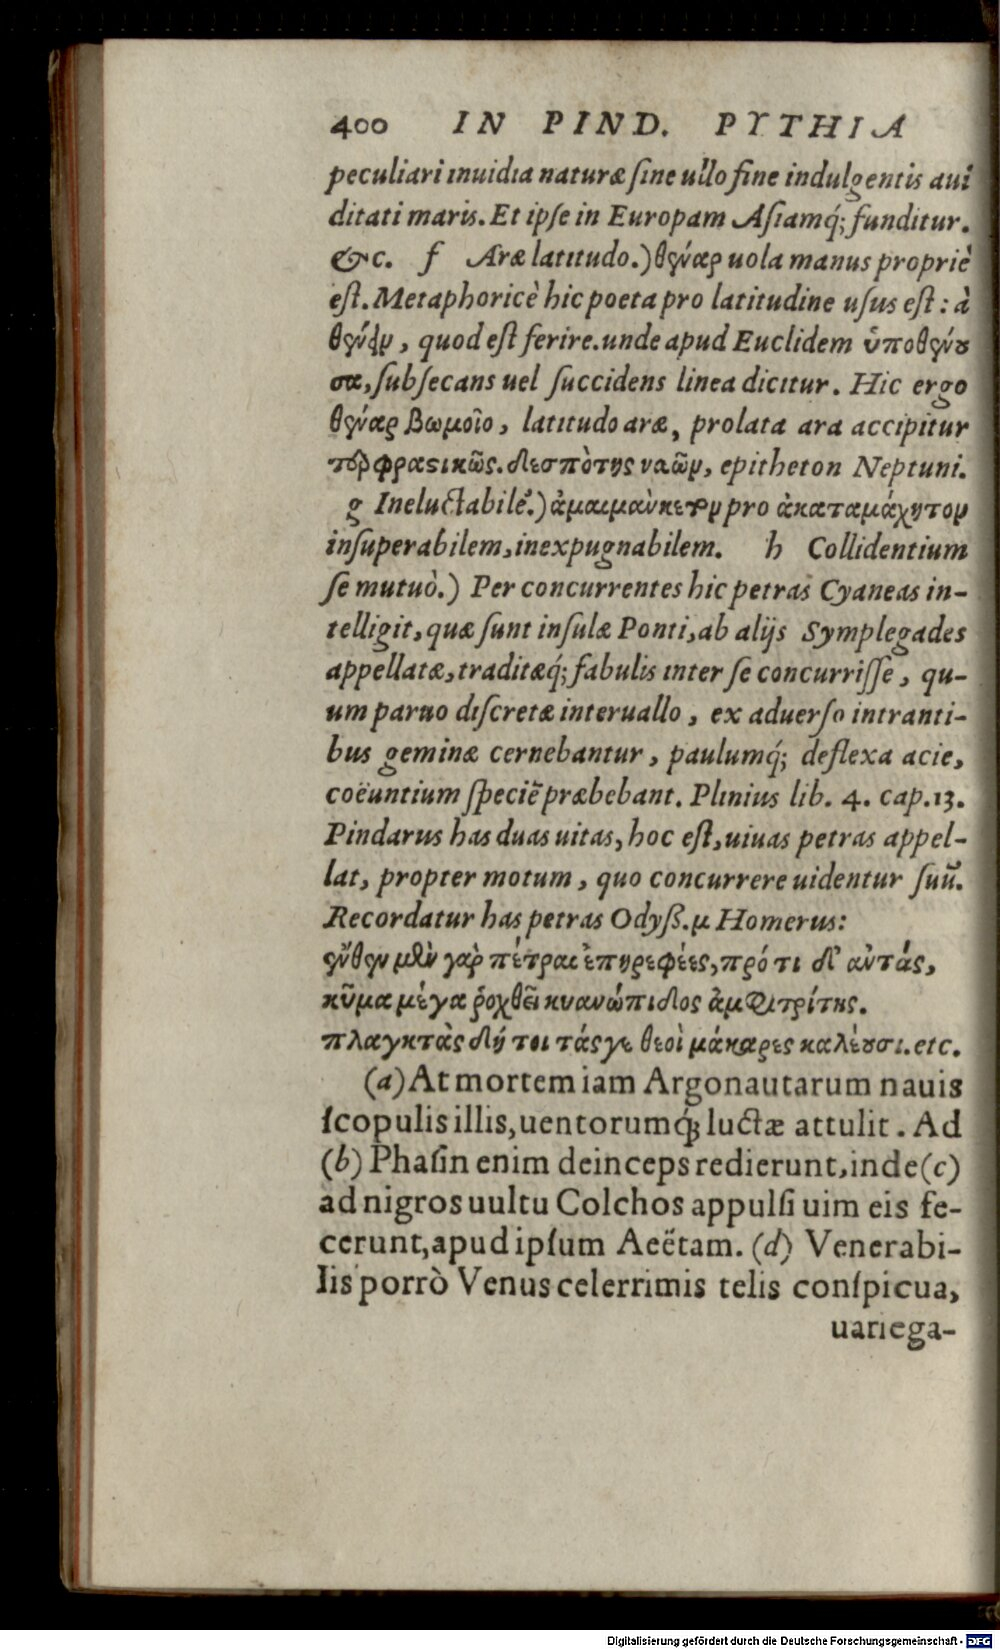 400 IN PIND. PYTHIA
peculiari inuidia naturæ ſine ullo fine indulgentis aui
ditati maris. Et ipſe in Europam Aſiamq́; funditur.
&c. f Aræ latitudo.) θένας uola manus propriè
eſt. Metaphoricè hic poeta pro latitudine uſus eſt: à
θένειν, quod eſt ferire. unde apud Euclidem ὑποθένου
σα, ſubſecans uel ſuccidens linea dicitur. Hic ergo
θένας βωμοῖο, latitudo aræ, prolata ara accipitur
περφραστικῶς. δεσπὸτης ναῶν, epitheton Neptuni.
g Ineluctabilẽ.) ἀμαιμὰκετον pro ἀκαταμάχητον
inſuperabilem, inexpugnabilem. h Collidentium
ſe mutuò.) Per concurrentes hic petras Cyaneas in-
telligit, quæ ſunt inſulæ Ponti, ab alijs Symplegades
appellatæ, traditæq́; fabulis inter ſe concurriſſe, qu-
um paruo diſcretæ interuallo, ex aduerſo intranti-
bus geminæ cernebantur, paulumq́; deflexa acie,
coëuntium ſpeciẽ præbebant. Plinius lib. 4. cap. 13.
Pindarus has duas uitas, hoc eſt, uiuas petras appel-
lat, propter motum, quo concurrere uidentur ſuũ.
Recordatur has petras Odyß. μ Homerus:
ἔνθεν μὲν γὰρ πέτραι ἐπηρεφέες, πρότι δ' αὐτάς,
κῦμα μέγα ῥοχθεῖ κυανώπιδος ἀμφιτρίτης.
πλαγκτὰς δή τοι τάς γε θεοὶ μάκαρες καλέουσι. etc.
(a) At mortem iam Argonautarum nauis
ſcopulis illis, uentorumq́; luctæ attulit. Ad
(b) Phaſin enim deinceps redierunt, inde (c)
ad nigros uultu Colchos appulſi uim eis fe-
cerunt, apud ipſum Aeëtam. (d) Venerabi-
lis porrò Venus celerrimis telis conſpicua,
uariega-
Digitalisierung gefördert durch die Deutsche Forschungsgemeinschaft - DFG